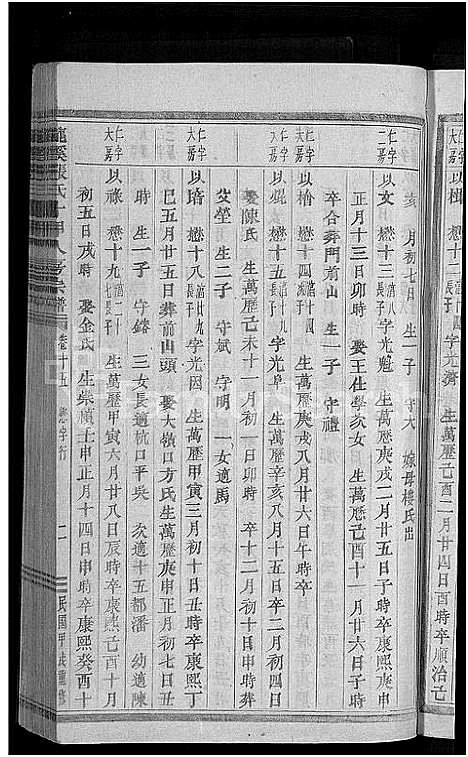 仁字大嘉 以楫 懋十二滴十四長子 字光濟 生萬歷己酉二月廿四日酉時卒順治己
亥 月初七日 生一子 守大 嫁母樓氏出
仁字二嘉 以文 懋十三滴八長子 字光魁 生萬歷庚戌二月廿五日子時卒康熙庚申
正月十三日卯時 娶王仕學公女 生萬歷己酉十一月廿六日子時
卒合葬門前山 生一子 守禮
以楷 懋十四滴十四 生萬歷辛亥八月廿六日午時卒
仁字大嘉 以焜 懋十五 長子 字光阜 生萬歷辛亥八月十五日卒二月初四日
娶陳氏 生萬歷己未十一月初一日卯時 卒十二月初十日申時葬
塋 生二子 守斌 守明 一女適馬
仁字大嘉 以 懋十八滴十九長子 字光因 生萬歷甲寅三月初十日丑時卒康熙丁
巳五月廿五日葬前山頭 娶大嶺口方氏生萬歷庚申正月初七日丑
時 生一子 守鎔 三女長適杭口平吳 次適十五都潘 幼適陳
仁字大嘉 以祿 懋十九滴二十長子 生萬歷甲寅六月廿八日辰時卒康熙己酉十月
初五日戌時 娶金氏 生崇禎壬申正月十四日申時卒康熙癸酉十
龍溪張氏 宗譜 卷十五 懋字行 二 民國甲戌重修